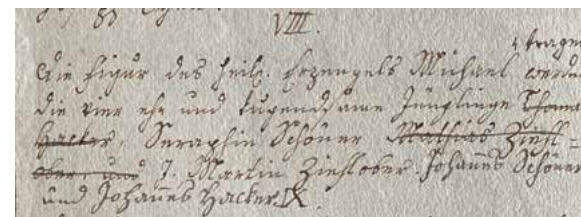 VIII.
tragen
Die Figur des heil. Erzengels Michael werde
die vier ehr und tugendsame Jünglinge Thoma
Hacker, Seraphin Schöner Mathias Ziehl=
ober, und J. Martin Ziehlober. Johannes Schöner
und Johannes Hacker. IX.